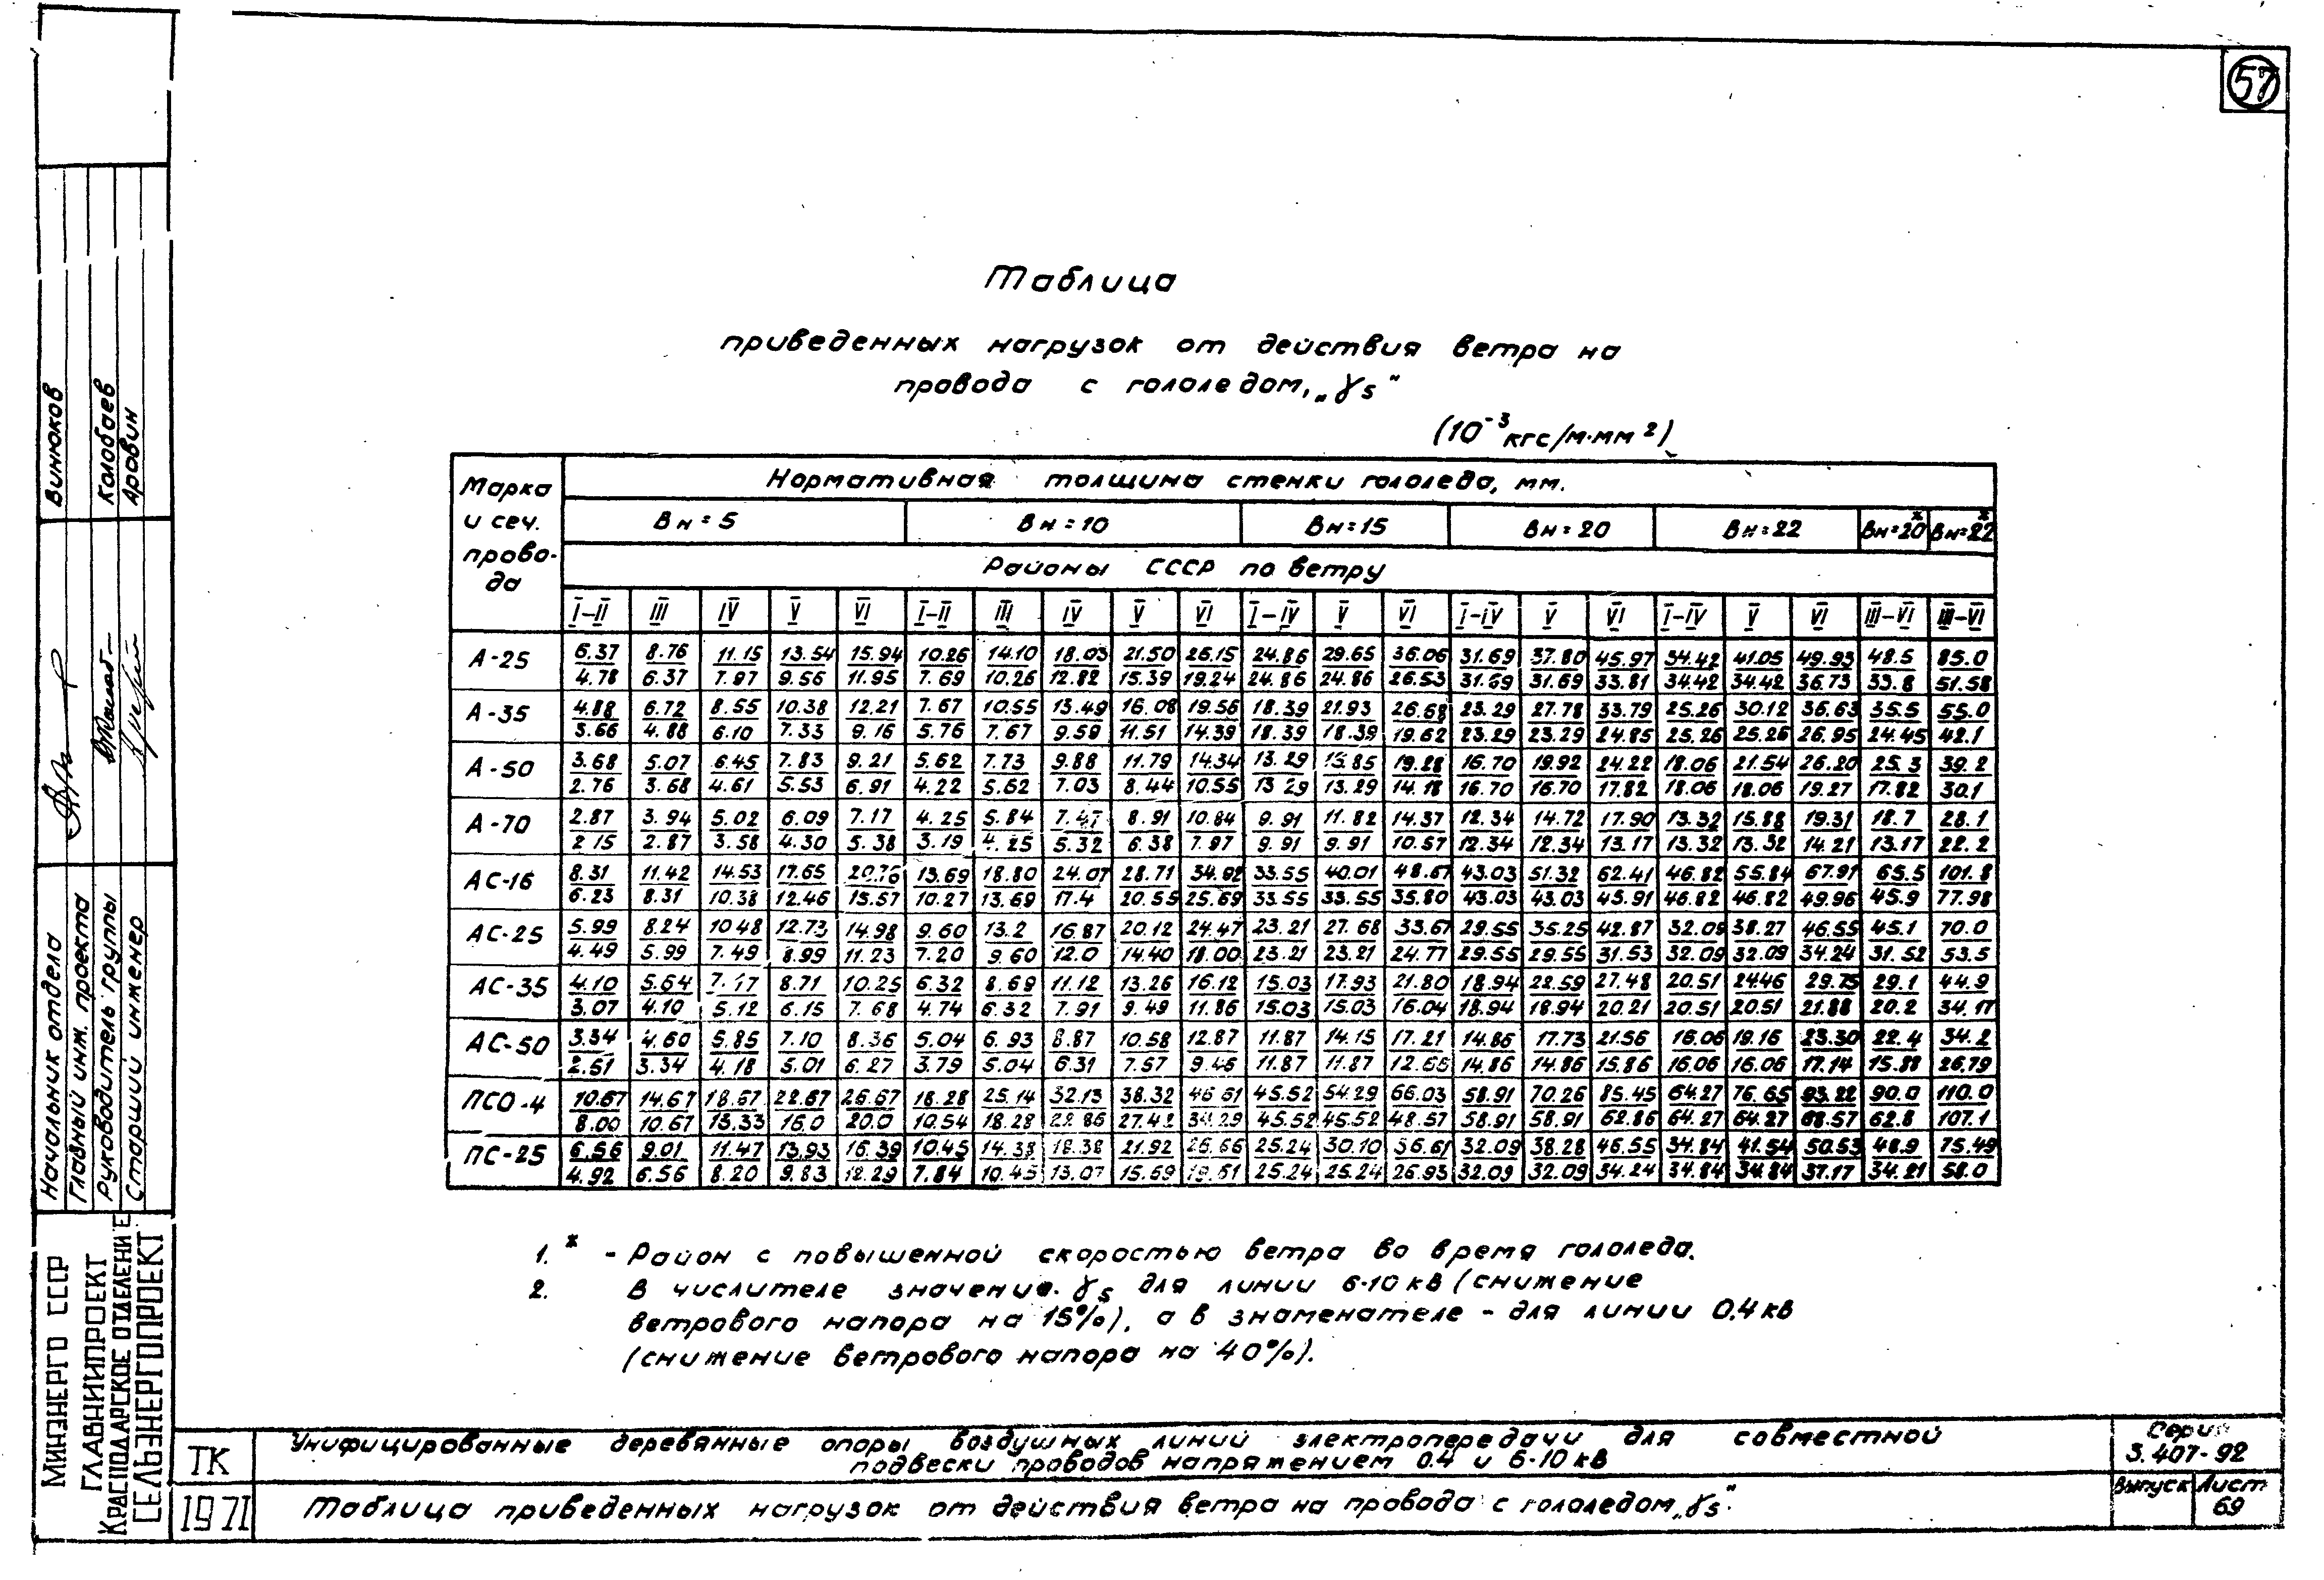 57
Таблица
приведенных нагрузок от действия ветра на
провода с гололедом, „γ5"
(10⁻³ кгс/м·мм²)
Марка и сеч. провода
Нормативная толщина стенки гололеда, мм.
Вн=5 Вн=10 Вн=15 Вн=20 Вн=22 Вн=20* Вн=22*
Районы СССР по ветру
I-II III IV V VI I-II III IV V VI I-IV V VI I-IV V VI I-IV V VI III-VI III-VI
А-25 6.37 8.76 11.15 13.54 15.94 10.26 14.10 18.03 21.50 26.15 24.86 29.65 36.06 31.69 37.80 45.97 34.42 41.05 49.93 48.5 85.0
4.78 6.37 7.97 9.56 11.95 7.69 10.26 12.82 15.39 19.24 24.86 24.86 26.53 31.69 31.69 33.81 34.42 34.42 36.73 33.8 51.58
А-35 4.88 6.72 8.55 10.38 12.21 7.67 10.55 13.49 16.08 19.56 18.39 21.93 26.68 23.29 27.78 33.79 25.26 30.12 36.63 35.5 55.0
3.66 4.88 6.10 7.33 9.16 5.76 7.67 9.59 11.51 14.39 18.39 18.39 19.62 23.29 23.29 24.85 25.26 25.26 26.95 24.45 42.1
А-50 3.68 5.07 6.45 7.83 9.21 5.62 7.73 9.88 11.79 14.34 13.29 15.85 19.28 16.70 19.92 24.22 18.06 21.54 26.20 25.3 39.2
2.76 3.68 4.61 5.53 6.91 4.22 5.62 7.03 8.44 10.55 13 29 13.29 14.18 16.70 16.70 17.82 18.06 18.06 19.27 17.82 30.1
А-70 2.87 3.94 5.02 6.09 7.17 4.25 5.84 7.47 8.91 10.84 9.91 11.82 14.37 12.34 14.72 17.90 13.32 15.88 19.31 18.7 28.1
2 15 2.87 3.58 4.30 5.38 3.19 4.25 5.32 6.38 7.97 9.91 9.91 10.57 12.34 12.34 13.17 13.32 13.32 14.21 13.17 22.2
АС-16 8.31 11.42 14.53 17.65 20.76 13.69 18.80 24.07 28.71 34.92 33.55 40.01 48.67 43.03 51.32 62.41 46.82 55.84 67.91 65.5 101.8
6.23 8.31 10.38 12.46 15.57 10.27 13.69 17.4 20.55 25.69 33.55 33.55 35.80 43.03 43.03 45.91 46.82 46.82 49.96 45.9 77.98
АС-25 5.99 8.24 10 48 12.73 14.98 9.60 13.2 16.87 20.12 24.47 23.21 27.68 33.67 29.55 35.25 42.87 32.09 38.27 46.55 45.1 70.0
4.49 5.99 7.49 8.99 11.23 7.20 9.60 12.0 14.40 18.00 23.21 23.21 24.77 29.55 29.55 31.53 32.09 32.09 34.24 31.52 53.5
АС-35 4.10 5.64 7.17 8.71 10.25 6.32 8.69 11.12 13.26 16.12 15.03 17.93 21.80 18.94 22.59 27.48 20.51 24.46 29.75 29.1 44.9
3.07 4.10 5.12 6.15 7.68 4.74 6.32 7.91 9.49 11.86 15.03 15.03 16.04 18.94 18.94 20.21 20.51 20.51 21.88 20.2 34.17
АС-50 3.34 4.60 5.85 7.10 8.36 5.04 6.93 8.87 10.58 12.87 11.87 14.15 17.21 14.86 17.73 21.56 16.06 19.16 23.30 22.4 34.2
2.51 3.34 4.18 5.01 6.27 3.79 5.04 6.31 7.57 9.46 11.87 11.87 12.66 14.86 14.86 15.86 16.06 16.06 17.14 15.88 26.79
ПСО-4 10.67 14.67 18.67 22.67 26.67 18.28 25.14 32.13 38.32 46 61 45.52 54.29 66.03 58.91 70.26 85.45 64.27 76.65 93.22 90.0 110.0
8.00 10.67 13.33 16.0 20.0 10.54 18.28 22 86 27.42 34.29 45.52 45.52 48.57 58.91 58.91 62.86 64.27 64.27 68.57 62.8 107.1
ПС-25 6.56 9.01 11.47 13.93 16.39 10.45 14.38 18.38 21.92 26.66 25.24 30.10 36.61 32.09 38.28 46.55 34.84 41.54 50.53 48.9 75.49
4.92 6.56 8.20 9.83 12.29 7.84 10.45 13.07 15.69 19.61 25.24 25.24 26.93 32.09 32.09 34.24 34.84 34.84 37.17 34.21 58.0
1. * - Район с повышенной скоростью ветра во время гололеда.
2. В числителе значения γ5 для линии 6-10 кв (снижение
ветрового напора на 15%), а в знаменателе - для линии 0.4 кв
(снижение ветрового напора на 40%).
Винюков
Колобаев
Аровин
Начальник отдела
Главный инж. проекта
Руководитель группы
Старший инженер
МИНЭНЕРГО СССР
ГЛАВНИИПРОЕКТ
КРАСНОДАРСКОЕ ОТДЕЛЕНИЕ
СЕЛЬЭНЕРГОПРОЕКТ
ТК
1971
Унифицированные деревянные опоры воздушных линий электропередачи для совместной
подвески проводов напряжением 0.4 и 6-10 кв
Таблица приведенных нагрузок от действия ветра на провода с гололедом „γ5".
Серия
3.407-92
Выпуск
Лист
69